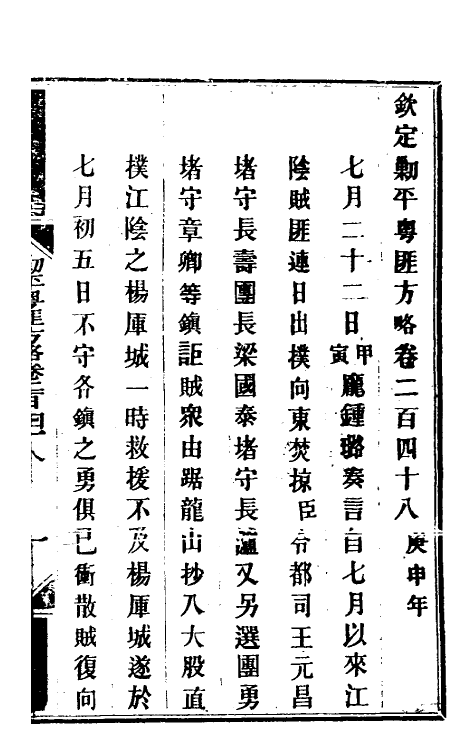 欽定勦平粤匪方略卷二百四十八 庚申年
七月二十二日甲寅龐鍾璐奏言自七月以來江
陰賊匪連日出撲向東焚掠臣令都司王元昌
堵守長壽團長梁國泰堵守長涇又另選團勇
堵守章卿等鎮詎賊衆由踞龍山抄入大股直
撲江陰之楊厙城一時救援不及楊厙城遂於
七月初五日不守各鎮之勇俱已衝散賊復向